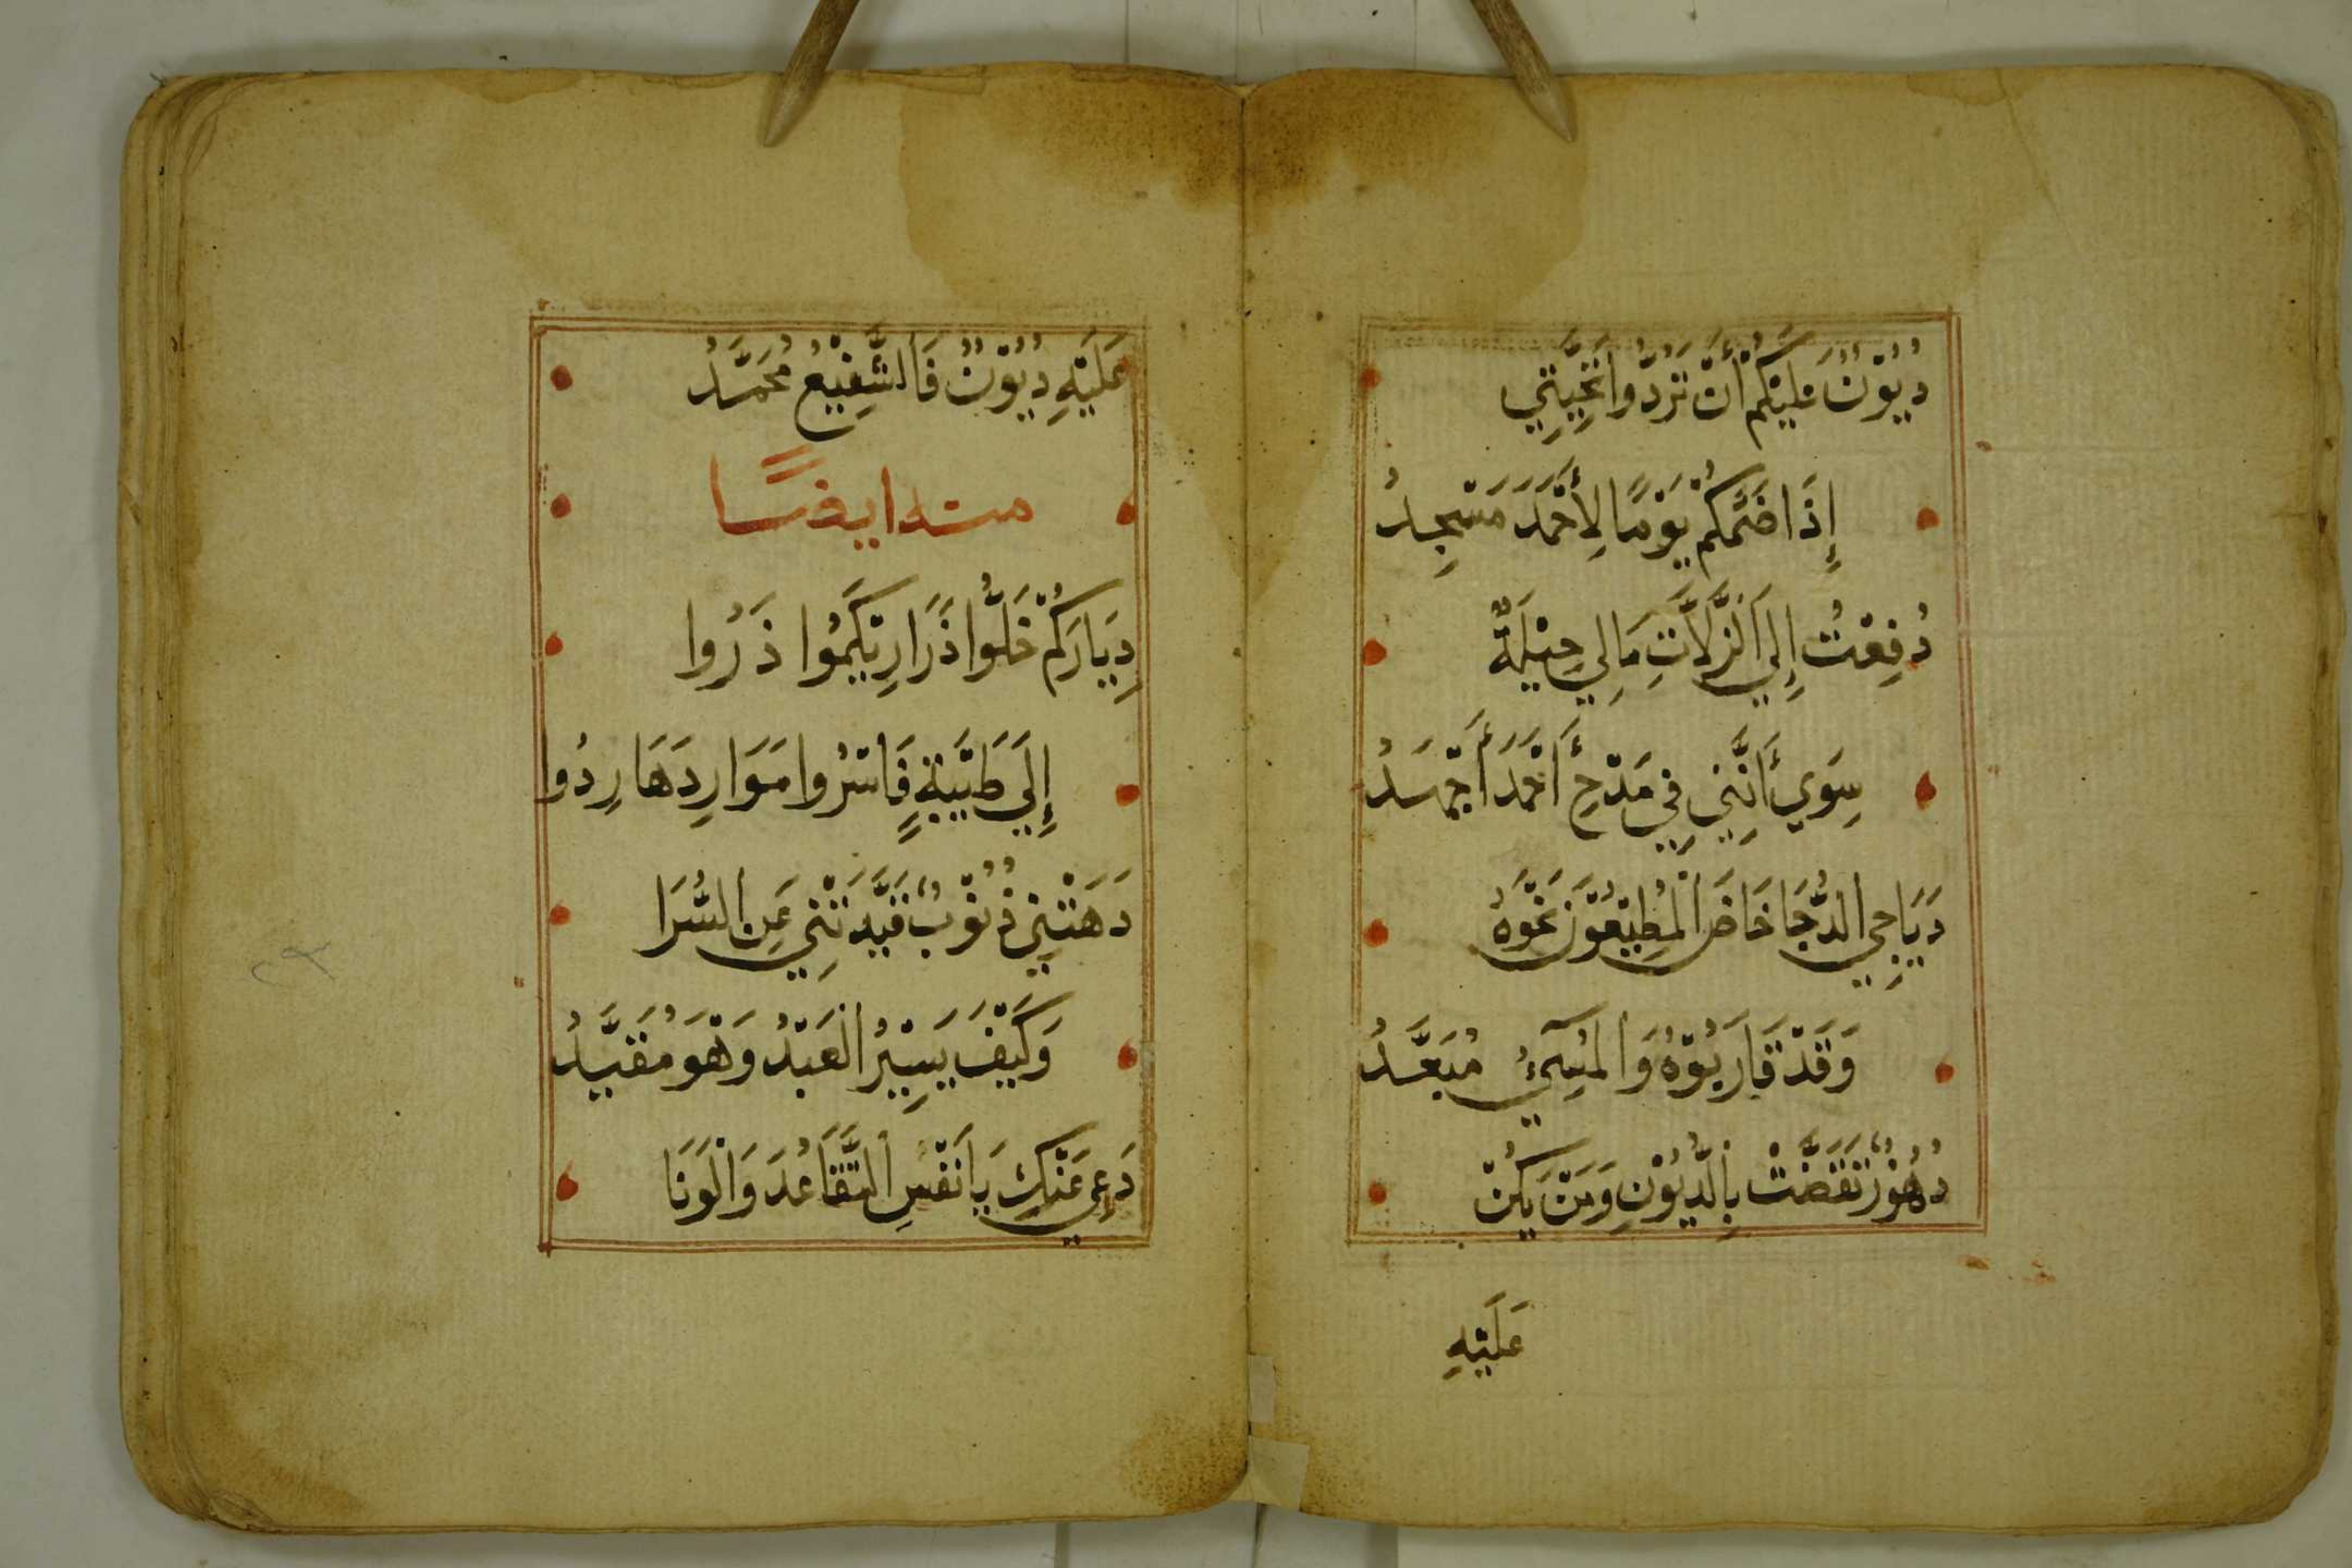 دُيُوْنٌ عَلَيْكُمْ أَنْ تَرُدُّوا تَحِيَّتِي
إِذَا ضَمَّكُمْ يَوْمًا لِأَحْمَدَ مَسْجِدُ
دُفِعْتُ إِلَي الزَّلَّاتِ مَالِي حِيْلَةٌ
سِوَي أَنَّنِي فِي مَدْحِ أَحْمَدَ أَجْهَدُ
دَيَاجِي الدُّجَا خَاضَ الْمُطِيْعُوْنَ نَحْوَهُ
وَقَدْ قَارَبُوْهُ وَالْمُسِيْءُ مُبَعَّدُ
دُهُوْرٌ تَقَضَّتْ بِالدُّيُوْنِ وَمَنْ يَكُنْ
عَلَيْهِ
عَلَيْهِ دُيُوْنٌ فَالشَّفِيْعُ مُحَمَّدُ
منه ايضًا
دِيَارَكُمْ خَلُّوا ذَرَارِيَكُمُوا ذَرُوا
إِلَي طَيْبَةٍ فَاسْرُوا مَوَارِدَهَا رِدُوا
دَهَتْنِي ذُنُوْبٌ قَيَّدَتْنِي عَنِ السُّرَا
وَكَيْفَ يَسِيْرُ الْعَبْدُ وَهْوَ مُقَيَّدُ
دَعِي عَنْكِ يَا نَفْسِ التَّقَاعُدَ وَالْوَنَا